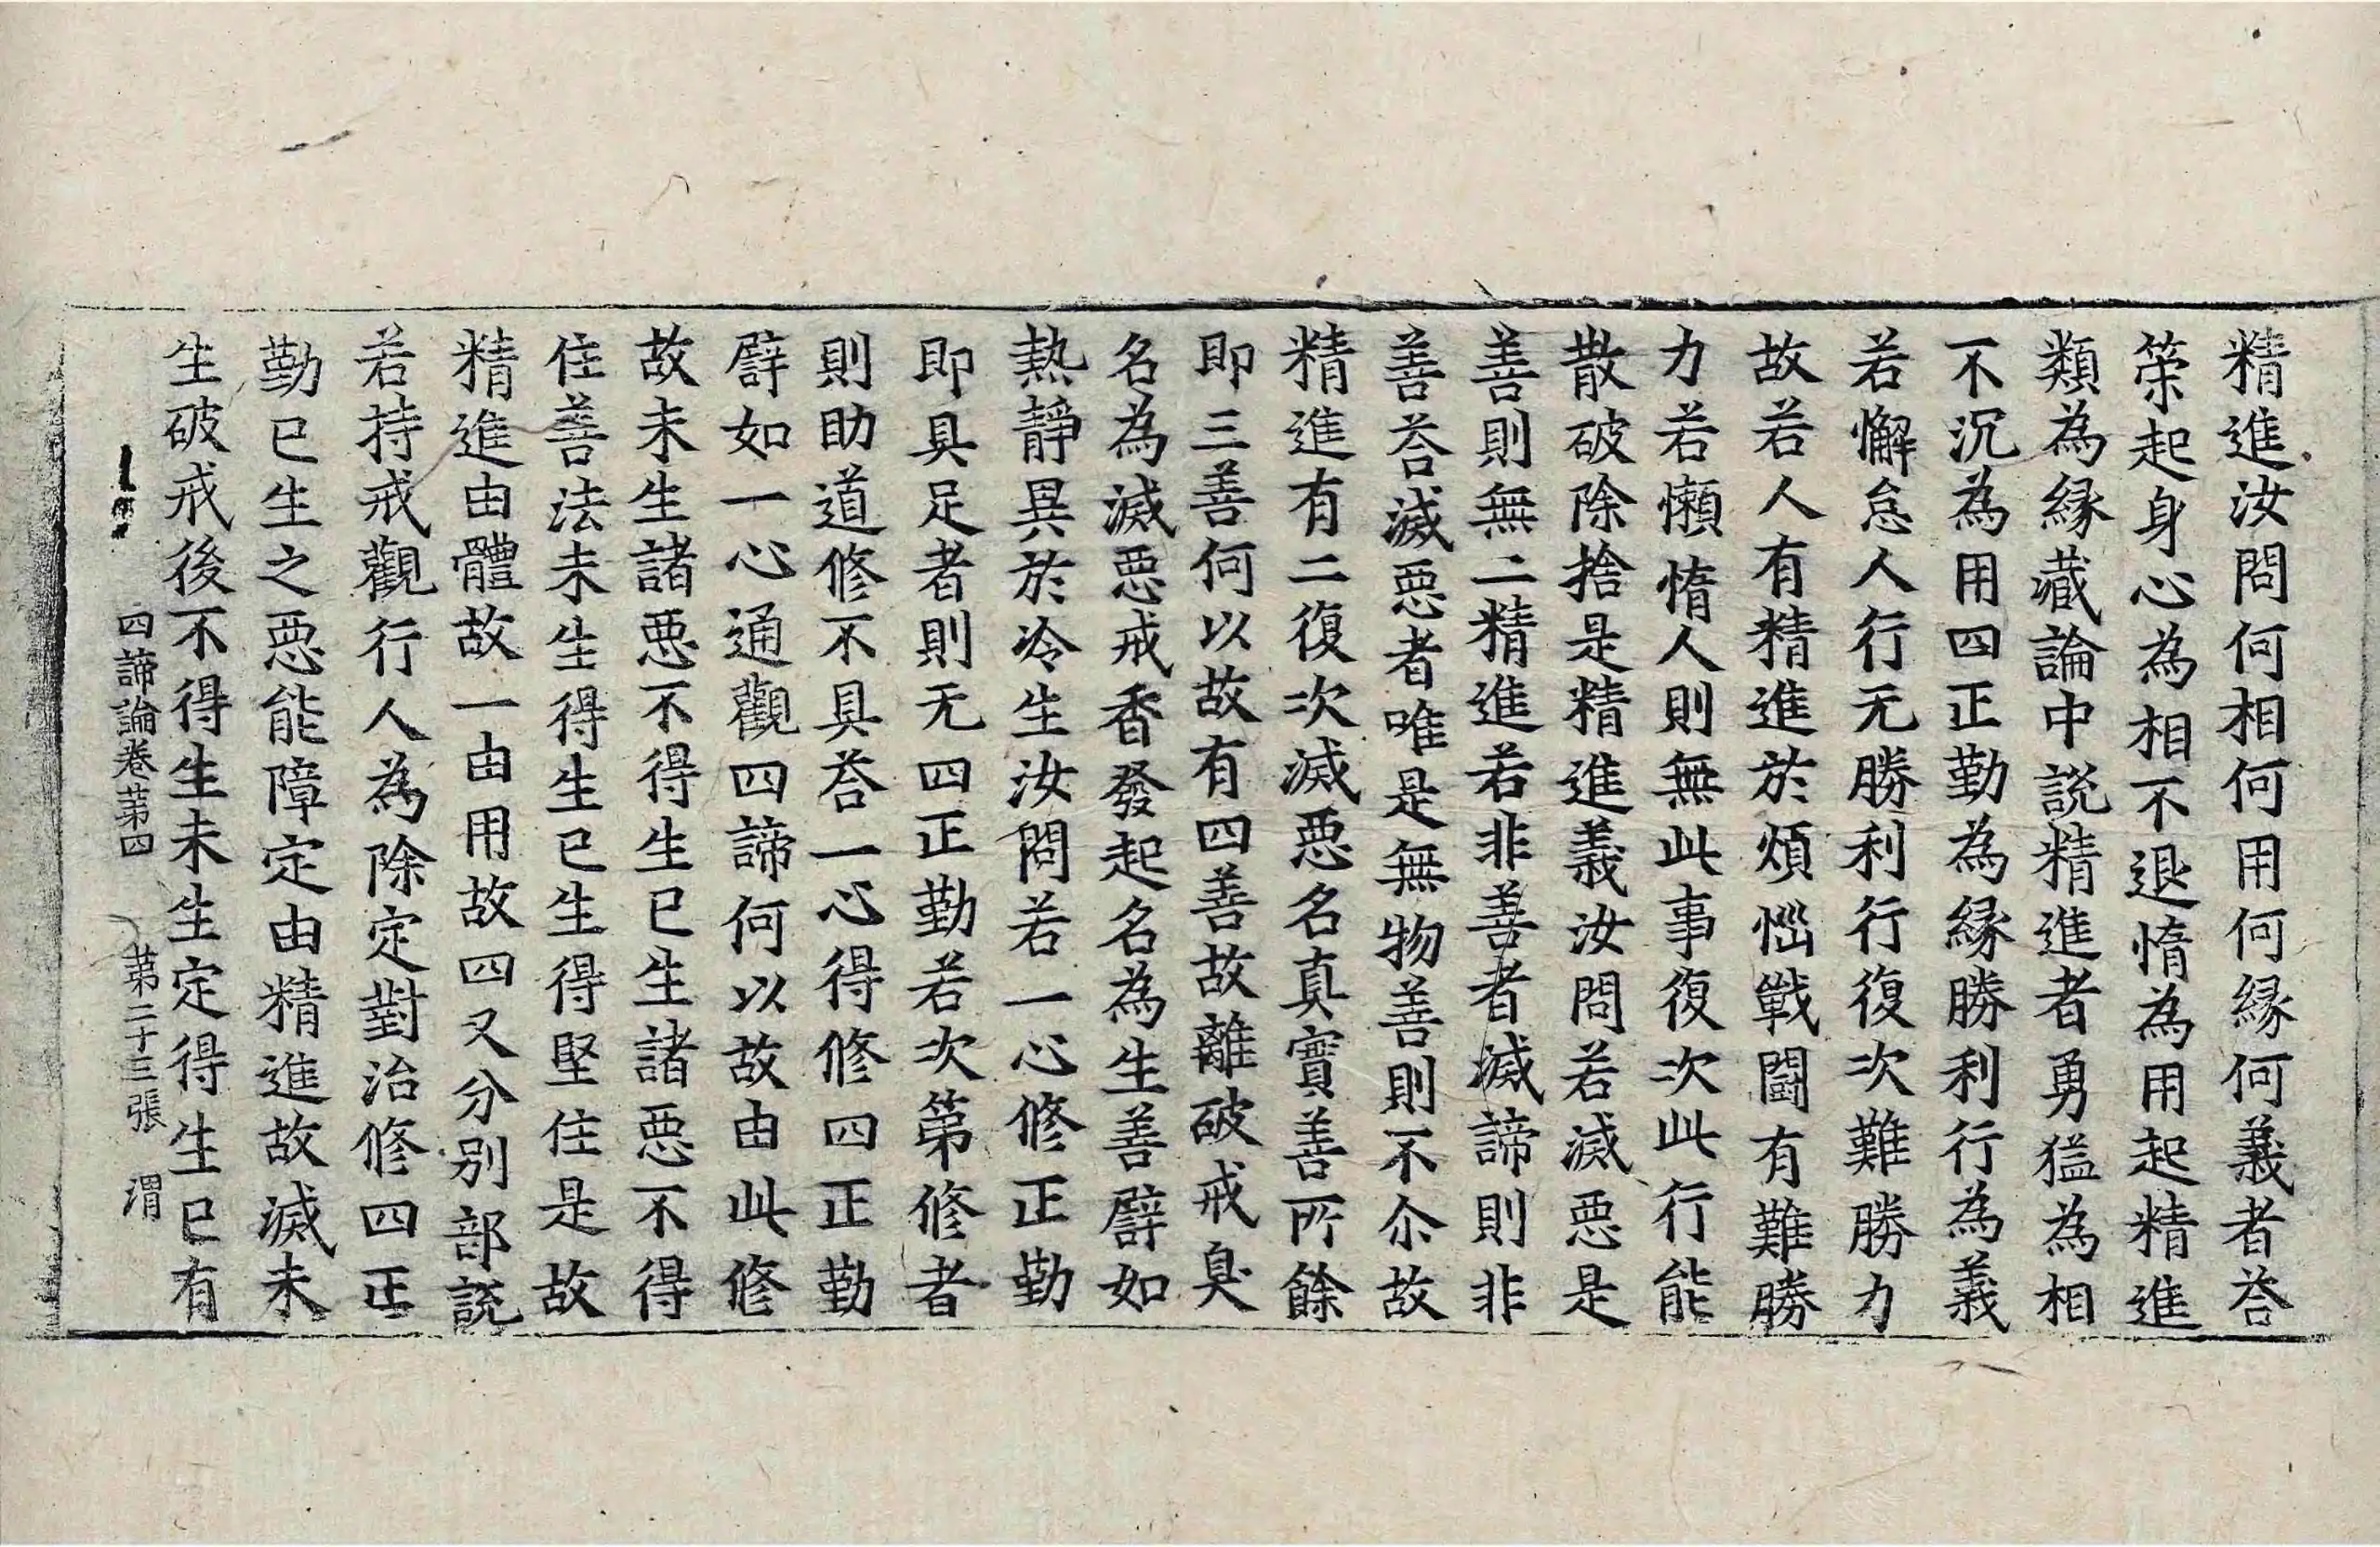 精進汝問何相何用何縁何義者荅
策起身心為相不退惰為用起精進
類為縁藏論中説精進者勇猛為相
不沉為用四正勤為縁勝利行為義
若懈怠人行无勝利行復次難勝力
故若人有精進於煩惱戰鬪有難勝
力若懶惰人則無此事復次此行能
散破除捨是精進義汝問若滅惡是
善則無二精進若非善者滅諦則非
善荅滅惡者唯是無物善則不尒故
精進有二復次滅惡名真實善所餘
即三善何以故有四善故離破戒臭
名為滅惡戒香發起名為生善譬如
熱靜異於冷生汝問若一心修正勤
即具足者則无四正勤若次第修者
則助道修不具荅一心得修四正勤
譬如一心通觀四諦何以故由此修
故未生諸惡不得生已生諸惡不得
住善法未生得生已生得堅住是故
精進由體故一由用故四又分別部説
若持戒觀行人為除定對治修四正
勤已生之惡能障定由精進故滅未
生破戒後不得生未生定得生已有
四諦論卷第四 第二十三張 渭